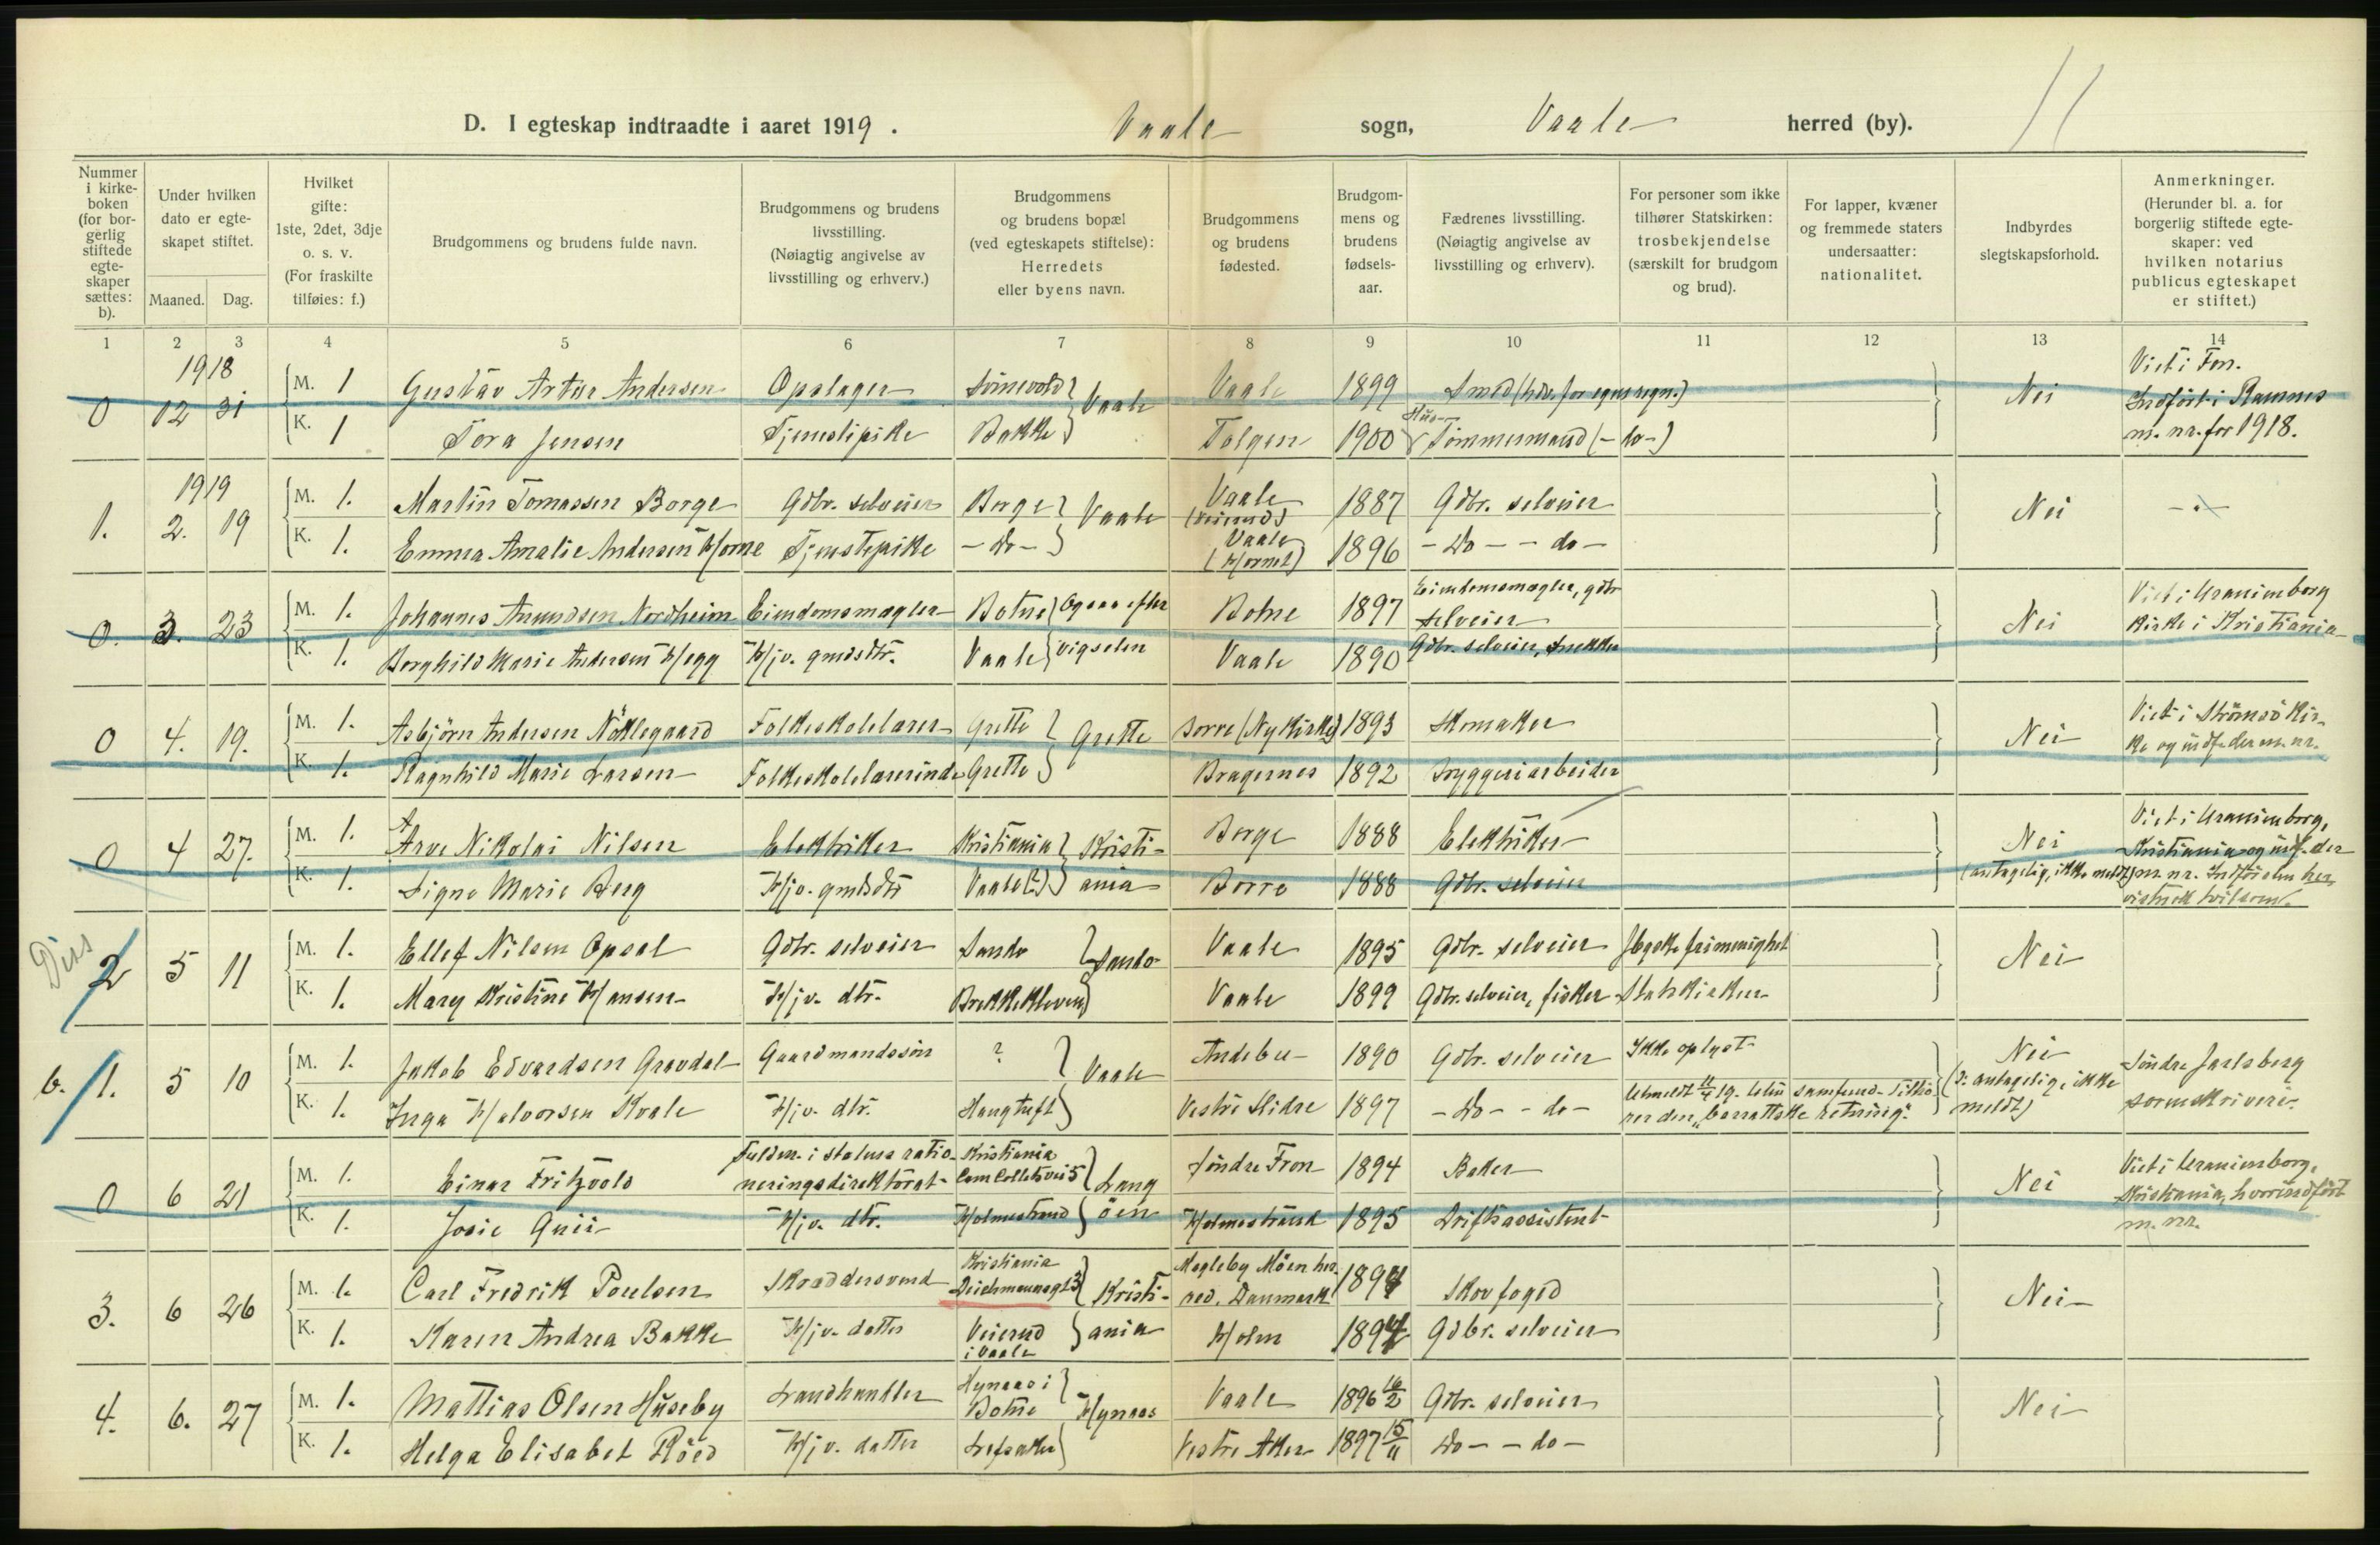 D. I egteskap indtraadte i aaret 1919. Vaale sogn, Vaale herred (by). 11
Nummer i kirkeboken (for borgerlig stiftede egteskaper sættes: b).
Under hvilken dato er egteskapet stiftet.
Maaned. Dag.
Hvilket gifte: 1ste, 2det, 3dje o. s. v. (For fraskilte tilføies: f.)
Brudgommens og brudens fulde navn.
Brudgommens og brudens livsstilling. (Nøiagtig angivelse av livsstilling og erhverv.)
Brudgommens og brudens bopæl (ved egteskapets stiftelse): Herredets eller byens navn.
Brudgommens og brudens fødested.
Brudgommens og brudens fødselsaar.
Fædrenes livsstilling. (Nøiagtig angivelse av livsstilling og erhverv).
For personer som ikke tilhører Statskirken: trosbekjendelse (særskilt for brudgom og brud).
For lapper, kvæner og fremmede staters undersaatter: nationalitet.
Indbyrdes slegtskapsforhold.
Anmerkninger. (Herunder bl. a. for borgerlig stiftede egteskaper: ved hvilken notarius publicus egteskapet er stiftet.)
1 2 3 4 5 6 7 8 9 10 11 12 13 14
1918
0 12 31 M. 1 Gustav Artur Andersen Opslager Vaale Vaale 1899 Smed (hdv. for egen regn.) Nei Viet i Fon. Indført i Ramnes m. nr. for 1918.
K. 1 Tora Jensen Tjenestepike Bakke Tolgen 1900 Hus- Tømmermand (- do -)
1919
1. 2. 19 M. 1. Martin Tomassen Borge Gdbr. selveier Borge Vaale Vaale (Veierud) 1887 Gdbr. selveier Nei - " -
K. 1. Emma Amalie Andersen Horne Tjenstepike - Do - Vaale (Hornet) 1896 - Do - - do -
0. 3. 23 M. 1. Johannes Amundsen Nordheim Eiendomsmægler Botne Ogsaa efter vigselen Botne 1897 Eiendomsmægler, gdbr selveier Nei Viet i Uranienborg kirke i Kristiania
K. 1. Borghild Marie Andersen Hegg Hjv. gmdsdtr. Vaale Vaale 1890 Gdbr. selveier, snekker
0 4. 19. M. 1. Asbjörn Andersen Nöklegaard Folkeskolelærer Grette Grette Borre (Nykirke) 1893 Skomaker Nei Viet i Strömsö kirke og indf. der m. nr.
K. 1. Ragnhild Marie Larsen Folkeskolelærerinde Grette Bragernes 1892 Bryggeriarbeider
0 4 27. M. 1. Arve Nikolai Nilsen Elektriker Kristiania Kristiania Borge 1888 Elektriker Nei (antagelig, ikke meldt) Viet i Uranienborg, Kristiania og indf. der m. nr. Indførselen her
K. 1. Signe Marie Berg Hjv. gmdsdtr Vaale (?) Borre 1888 Gdbr. selveier
Diss
2 5 11 M. 1. Ellef Nilsen Opsal Gdbr. selveier Sande Sande Vaale 1895 Gdbr. selveier frimenighet Nei
K. 1. Mary Kristine Hansen Hjv. dtr. Brekkekleven Vaale 1899 Gdbr. selveier, fisker Statskirken
b. 1. 5 10 M. 1. Jakob Edvardsen Gravdal Gaardmandssön ? Vaale Andebu 1890 Gdbr. selveier Ikke oplyst Nei (?: antagelig, ikke meldt) Söndre Jarlsberg sorenskriveri.
K. 1. Inga Halvorsen Kvale Hjv. dtr. Haugtuft Vestre Slidre 1897 - Do - - do - Utmeldt 11/4 19. Uten samfund. Tilhörer den "barrattske retning".
0 6 21 M. 1. Einar Fritzvold Fuldm. i statens rationeringsdirektorat Kristiania Cam Colletsvei 5 Langöen Söndre Fron 1894 Baker Nei Viet i Uranienborg, Kristiania, hvor indført m. nr.
K. 1. Josie Quii Hjv. dtr. Holmestrand Holmestrand 1895 Driftsassistent
3. 6 26 M. 1. Carl Fredrik Poulsen Skræddersvend Kristiania Deichmannsgt 3 Kristiania Magleby Möen herred, Danmark 1894 Skovfoged Nei
K. 1. Karen Andrea Bakke Hjv. datter Veierud i Vaale Holm 1894 Gdbr. selveier
4. 6. 27 M. 1. Mattias Olsen Huseby Landhandler Hynaas i Botne Hynaas Vaale 1896 16/2 Gdbr. selveier Nei
K. 1. Helga Elisabet Röed Hjv. datter Lefsaker Vestre Aker 1897 15/11 Do - - do -